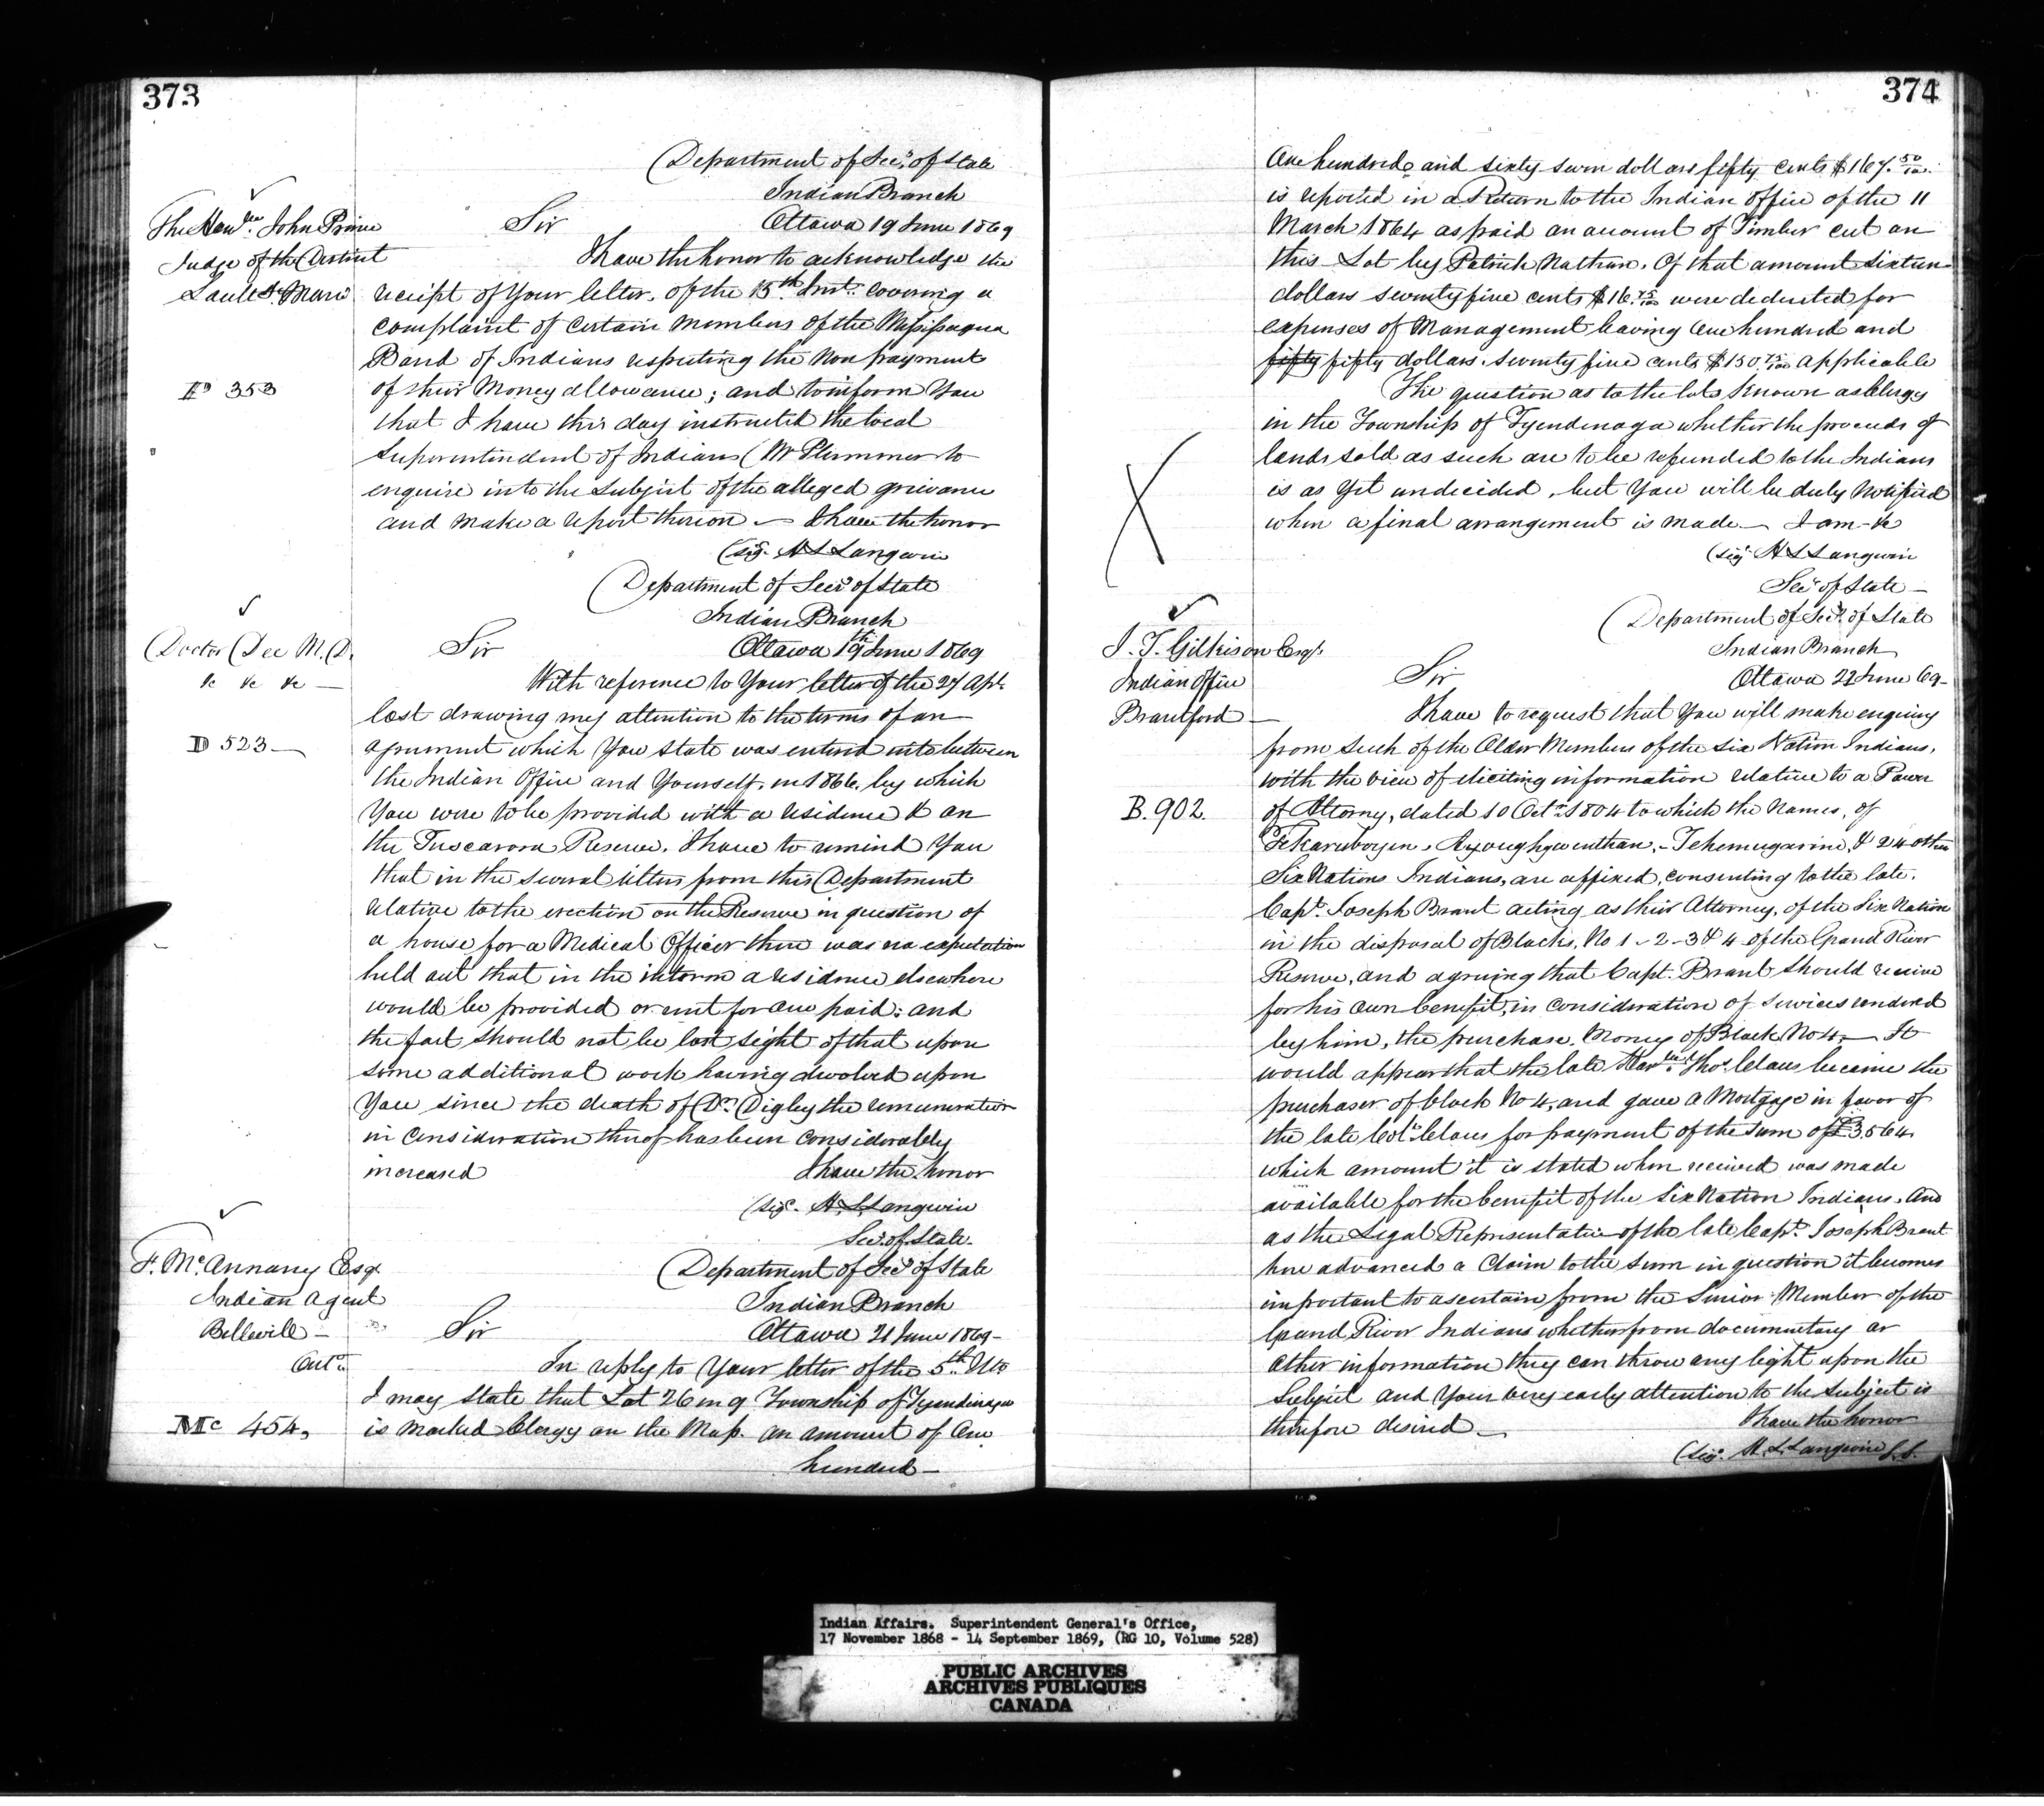 373
Department of Secy of State
Indian Branch
Ottawa 19 June 1869
The Honble John Prince
Judge of the District
Sault St Marie
Sir
I have the honor to acknowledge the
receipt of Your letter, of the 15th Inst: covering a
complaint of certain members of the Missisagua
Band of Indians respecting the Non payment
of their Money allowance; and to inform You
353
that I have this day instructed the local
Superintendent of Indians (Mr Plummer to
enquire into the subject of the alleged grievance
and make a report thereon — I have the honor
(sig. H L Langevin
Department of Secy of State
Indian Branch
Ottawa 19th June 1869
Doctor Dee M.D.
&c &c &c —
D 523 —
Sir
With reference to Your letter of the 27 Apl.
last drawing my attention to the terms of an
agreement which You state was entered into between
the Indian Office and Yourself, in 1866, by which
You were to be provided with a residence & on
the Tuscarora Reserve, I have to remind You
that in the several letters from this Department
relative to the erection on the Reserve in question of
a house for a Medical Officer there was no expectation
held out that in the interim a residence elsewhere
would be provided or rent for one paid; and
the fact should not be lost sight of that upon
some additional work having devolved upon
You since the death of Dr Digby the remuneration
in consideration thereof has been considerably
increased I have the honor
(sig. H. L. Langevin
Secy of State.
Department of Secy of State
Indian Branch
Ottawa 21 June 1869 –
F. McAnnany Esq.
Indian Agent
Belleville –
Ont.
Mc 454,
Sir
In reply to Your letter of the 5th Ulto
I may state that Lot 26 in 9 Township of Tyendinaga
is marked Clergy on the Map. an amount of One
hundred —
374
One hundred and sixty seven dollars fifty cents $167.50/100.
is reported in a Return to the Indian Office of the 11
March 1864 as paid on account of Timber cut on
this Lot by Patrick Nathan. Of that amount sixteen
dollars seventy five cents $16.75/100 were deducted for
expenses of Management leaving One hundred and
fifty fifty dollars seventy five cents $150.75/100 applicable
The question as to the lots known as Clergy
in the Township of Tyendenaga whether the proceeds of
lands sold as such are to be refunded to the Indians
is as yet undecided, but You will be duly Notified
when a final arrangement is made — I am &c
(sig H L Langevin
Secy of State —
Department of Secy of State
Indian Branch
Ottawa 21 June 69 –
J. T. Gilkison Esqr.
Indian Office
Brantford —
B. 902.
Sir
I have to request that You will make enquiry
from such of the Older Members of the Six Nation Indians,
with the view of eliciting information relative to a Power
of Attorney, dated 10 Oct 1804 to which the Names, of
& 24 other
Six Nations Indians, are affixed, consenting to the late.
Capt. Joseph Brant acting as their Attorney, of the Six Nation
in the disposal of Blocks, No 1 – 2 – 3 & 4 of the Grand River
Reserve, and agreeing that Capt. Brant should receive
for his own benefit, in consideration of services rendered
by him, the purchase. Money of Block No 4 — It
would appear that the late Honble Thos Claus became the
purchaser of block No 4, and gave a Mortgage in favor of
the late Col. Claus for payment of the sum of £3,564
which amount it is stated when received was made
available for the benefit of the Six Nation Indians. And
as the Legal Representative of the late Capt. Joseph Brant
have advanced a Claim to the sum in question it becomes
important to ascertain from the Senior Member of the
Grand River Indians whether from documentary or
other information they can throw any light upon the
Subject and Your very early attention to the subject is
therefore desired — I have the honor
(sig. H. L. Langevin S.S.
Indian Affairs. Superintendent General's Office,
17 November 1868 - 14 September 1869, (RG 10, Volume 528)
PUBLIC ARCHIVES
ARCHIVES PUBLIQUES
CANADA